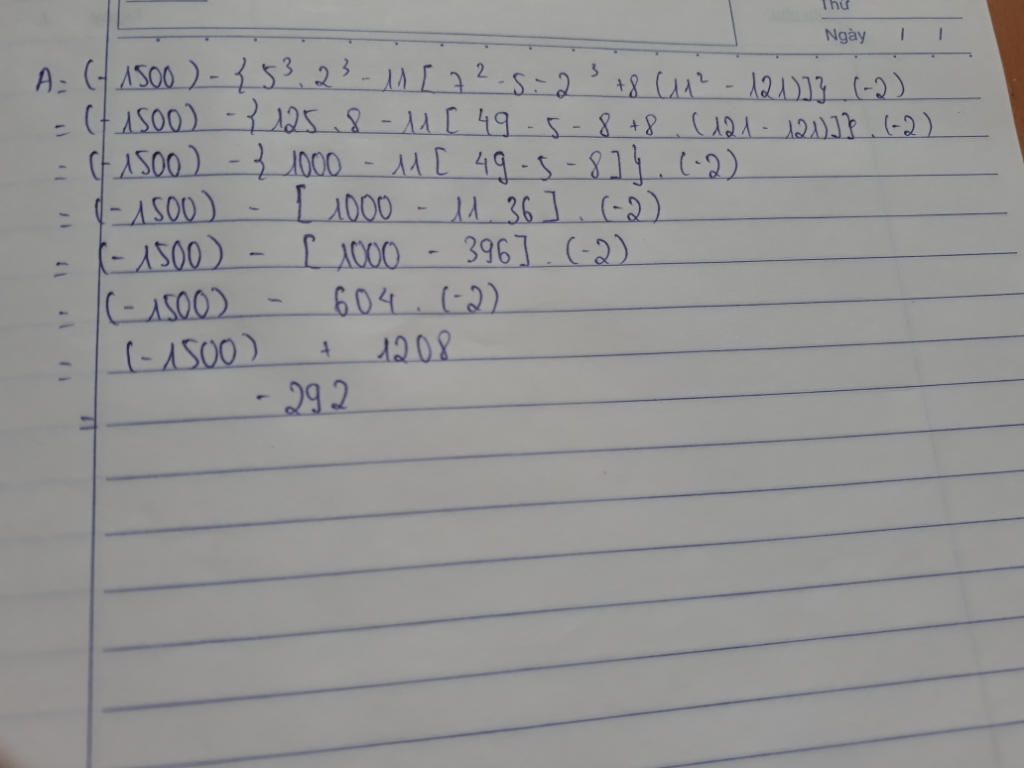 Thứ
Ngày / /
A = (-1500) - { 5³ . 2³ - 11 [ 7² - 5 - 2³ + 8 (11² - 121)]} . (-2)
= (-1500) - { 125 . 8 - 11 [ 49 - 5 - 8 + 8 . (121 - 121)]} . (-2)
= (-1500) - { 1000 - 11 [ 49 - 5 - 8 ] } . (-2)
= (-1500) - [ 1000 - 11 . 36 ] . (-2)
= (-1500) - [ 1000 - 396 ] . (-2)
= (-1500) - 604 . (-2)
= (-1500) + 1208
= - 292